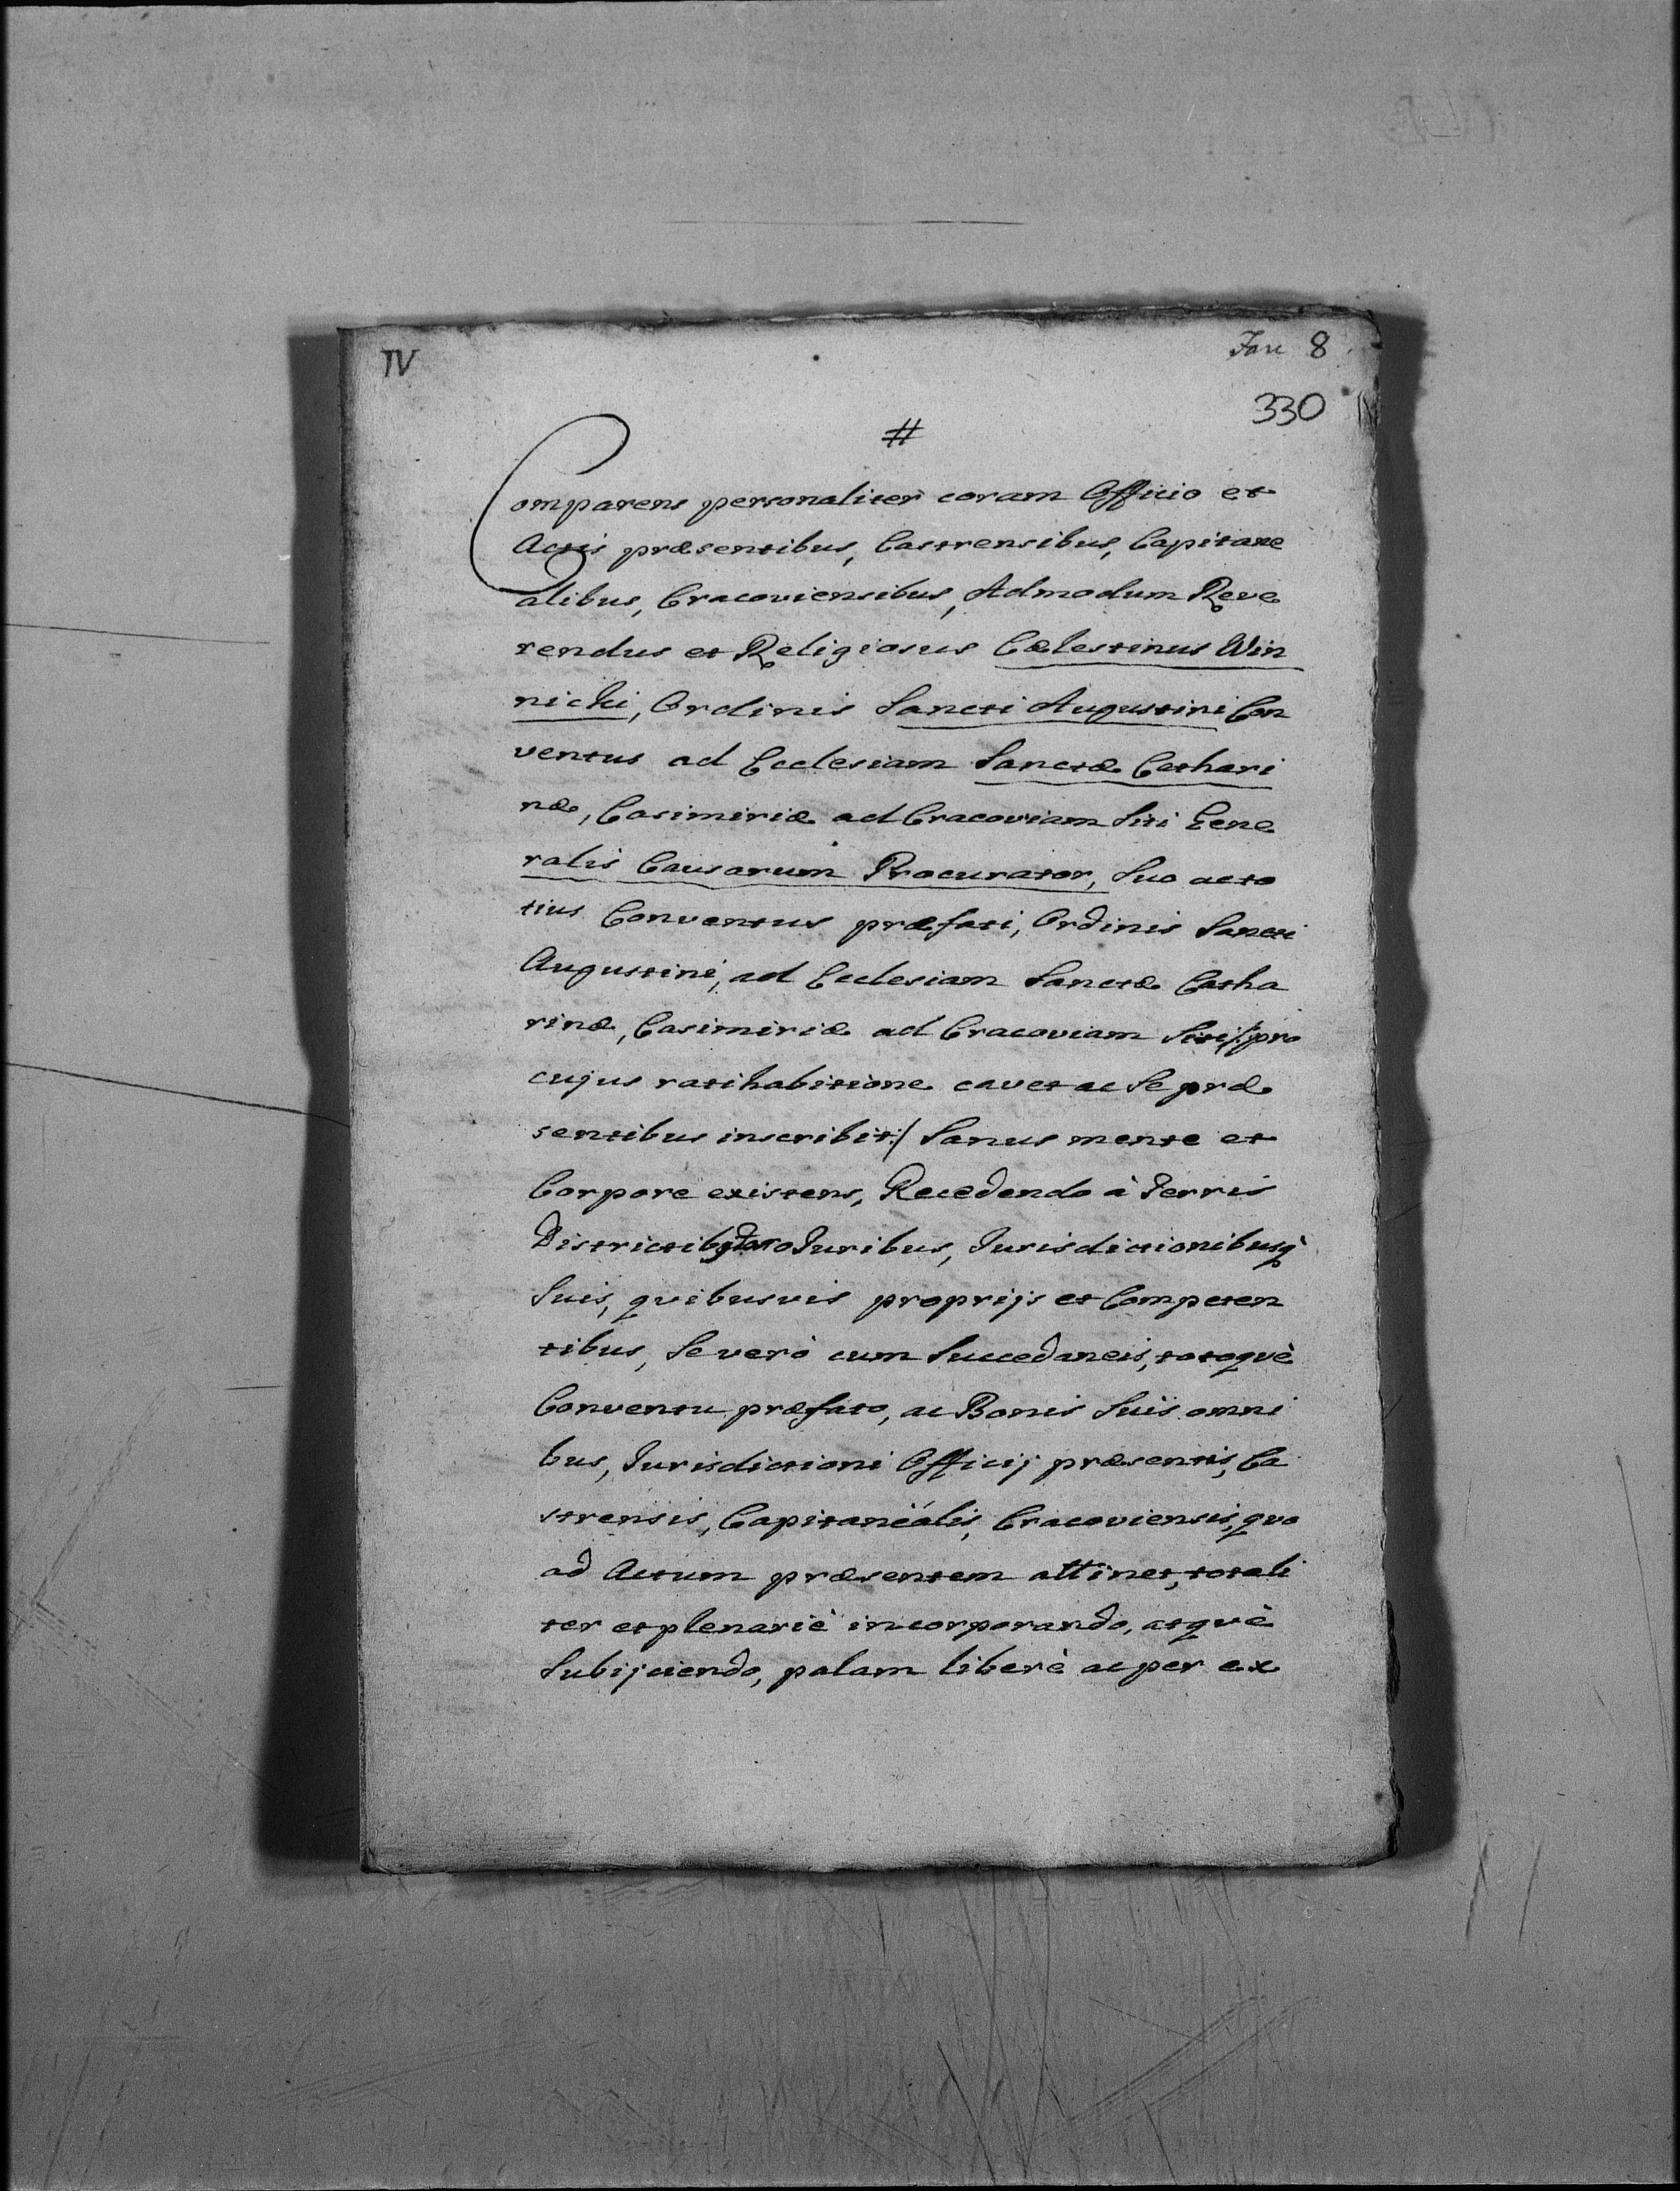 IV
Fasc 8
330
#
Comparens personaliter coram Officio et
Actis præsentibus, Castrensibus, Capitane
alibus, Cracoviensibus, Admodum Reve
rendus et Religiosus Cælestinus Win
nicki, Ordinis Sancti Augustini Con
ventus ad Ecclesiam Sanctæ Cathari
næ, Casimiriæ ad Cracoviam Siti Gene
ralis Causarum Procurator, Suo ac to
tius Conventus præfati, Ordinis Sancti
Augustini, ad Ecclesiam Sanctæ Catha
rinæ, Casimiriæ ad Cracoviam Siti /: pro
cujus ratihabitione cavet ac Se præ
sentibus inscribit :/ Sanus mente et
Corpore existens, Recedendo à Terris
Juribus, Jurisdictionibusq̀
Suis, quibusvis proprijs et Competen
tibus, Se verò cum Succedaneis, totoquè
Conventu præfato, ac Bonis Suis omni
bus, Jurisdictioni Officij præsentis, Ca
strensis, Capitanealis, Cracoviensis, quo
ad Actum præsentem attinet, totali
ter et plenariè incorporando, atquè
Subijciendo, palam liberè ac per ex